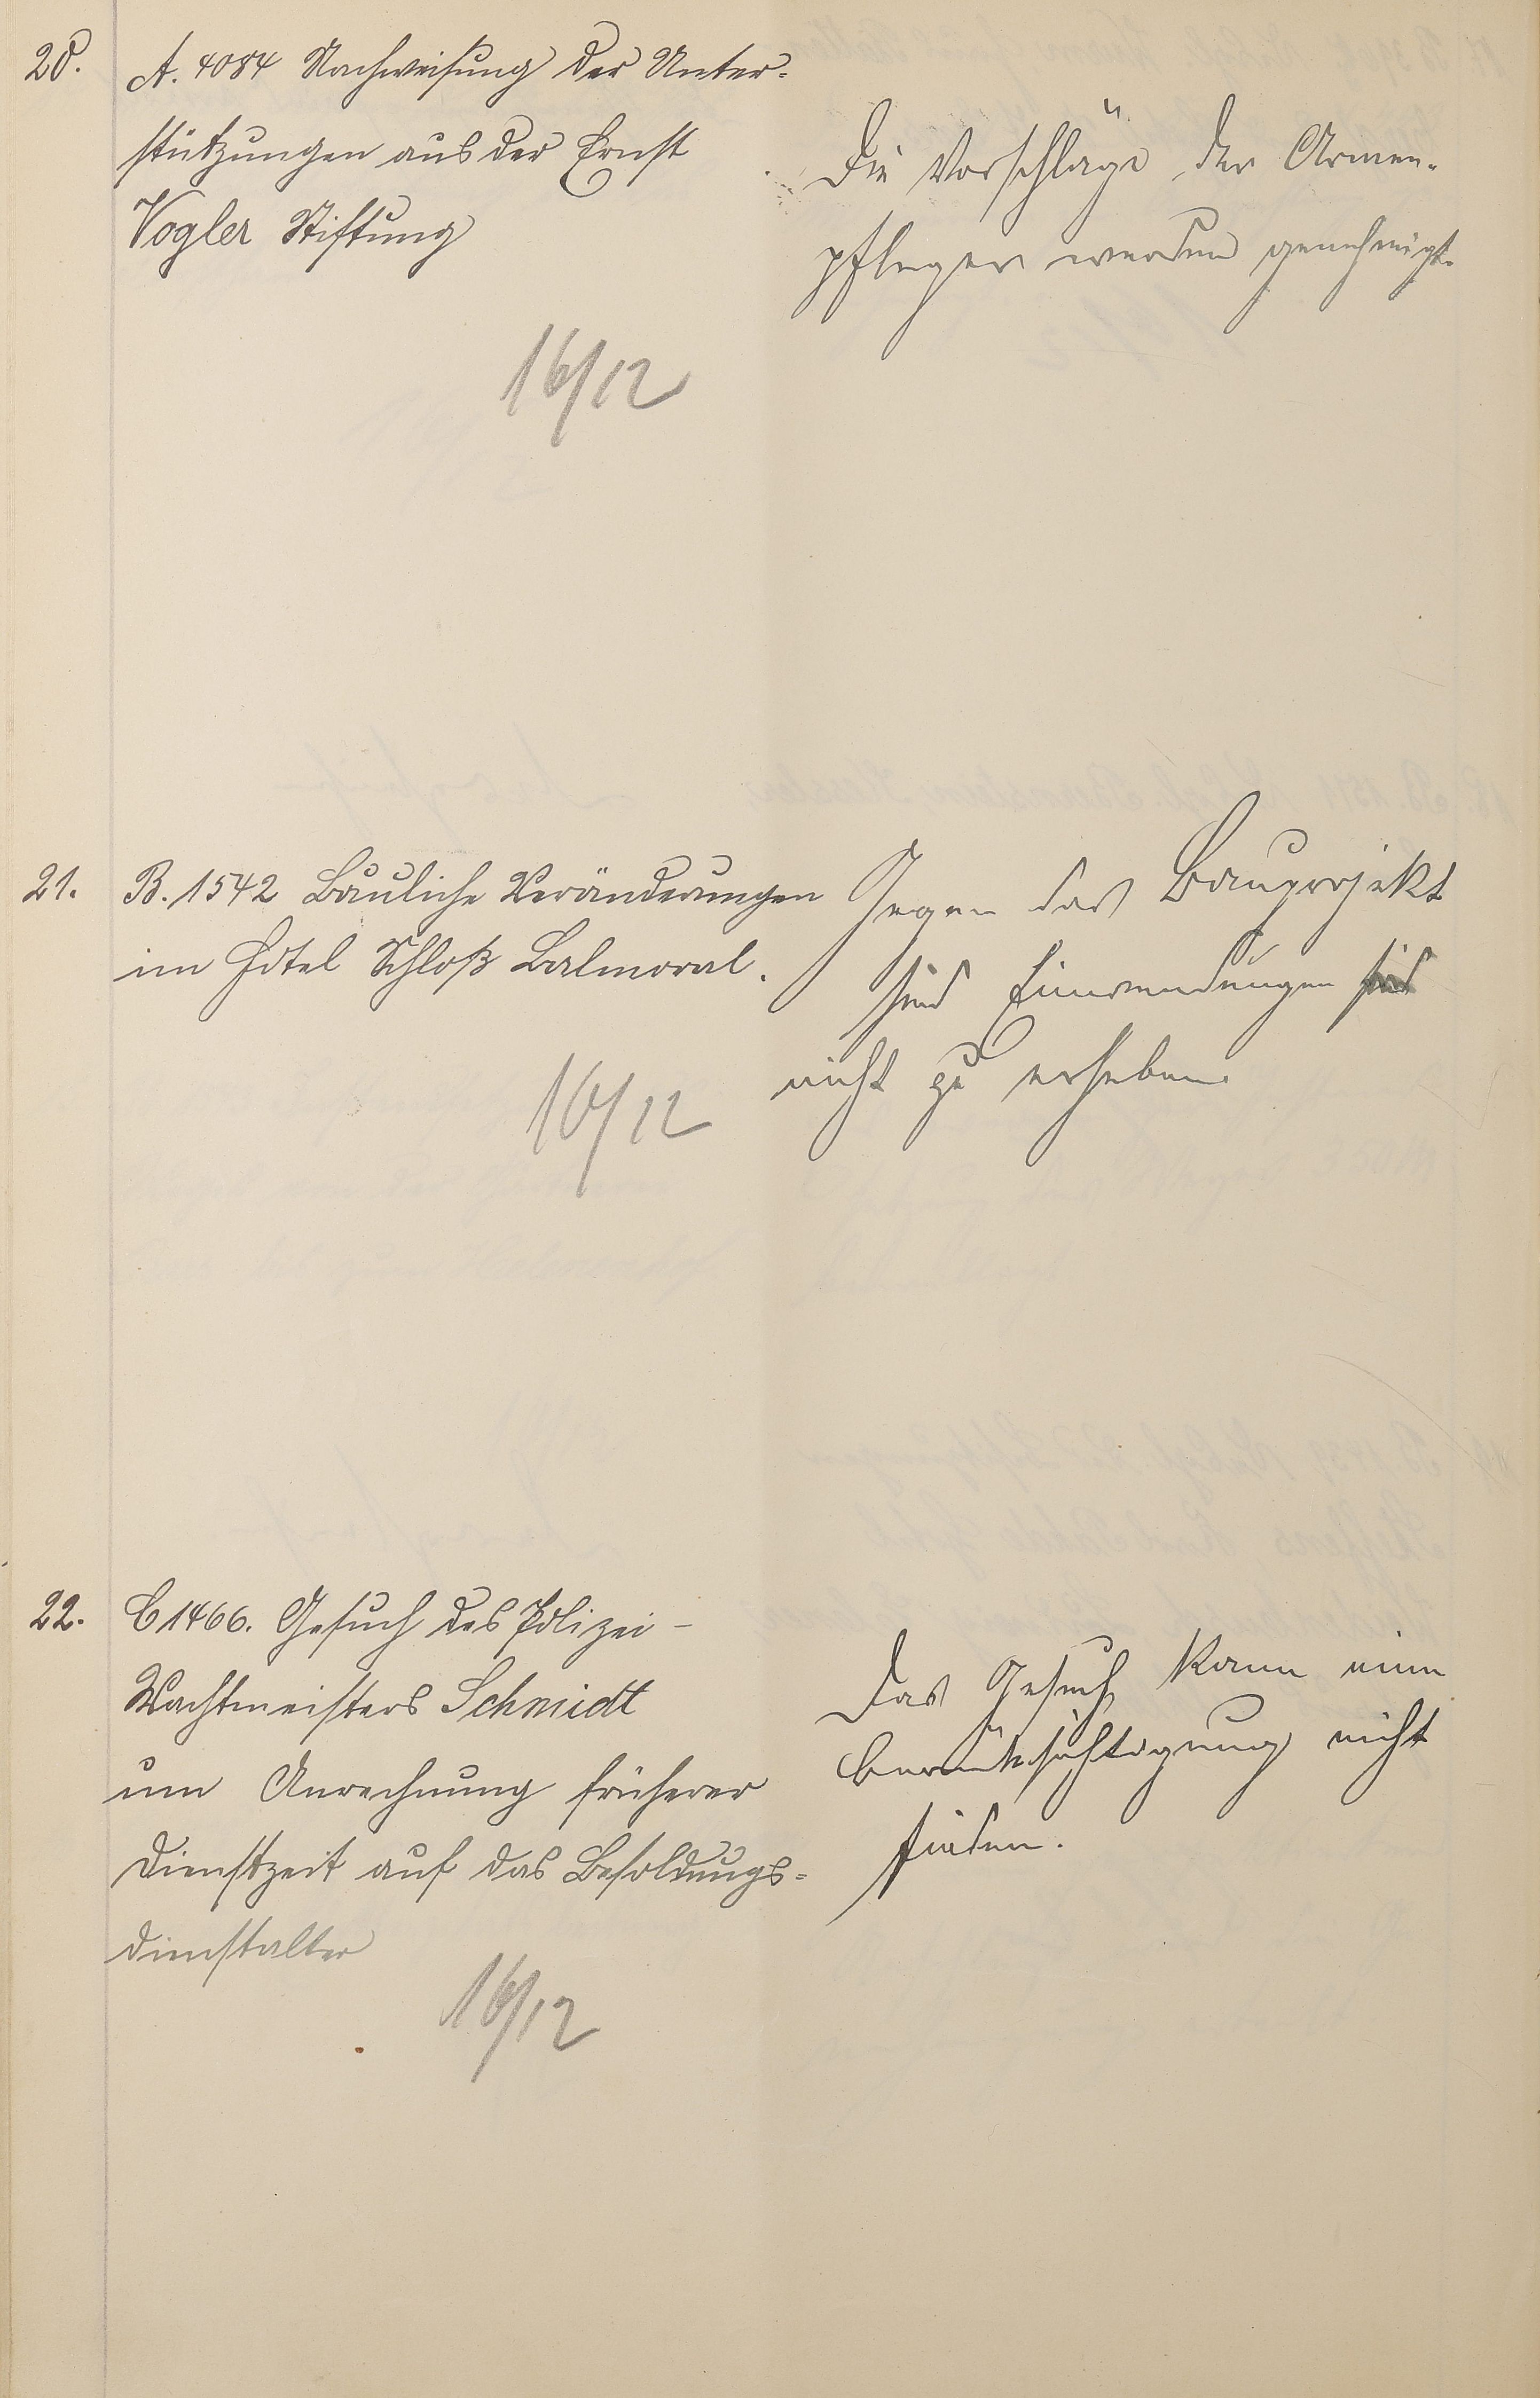 20.
A. 4084 Nachweisung der Unter-
stützungen aus der Ernst
Vogler Stiftung
16/12
Die Vorschläge der Armen-
pfleger werden genehmigt.
21.
B. 1542 Bauliche Veränderungen
im Hotel Schloß Balmoral.
16/12
Gegen das Bauprojekt
sind Einwendungen
nicht zu erheben.
22.
C 1466. Gesuch des Polizei-
Wachtmeisters Schmidt
um Anrechnung früherer
Dienstzeit auf das Besoldungs-
dienstalter
16/12
Das Gesuch kann eine
Berücksichtigung nicht
finden.